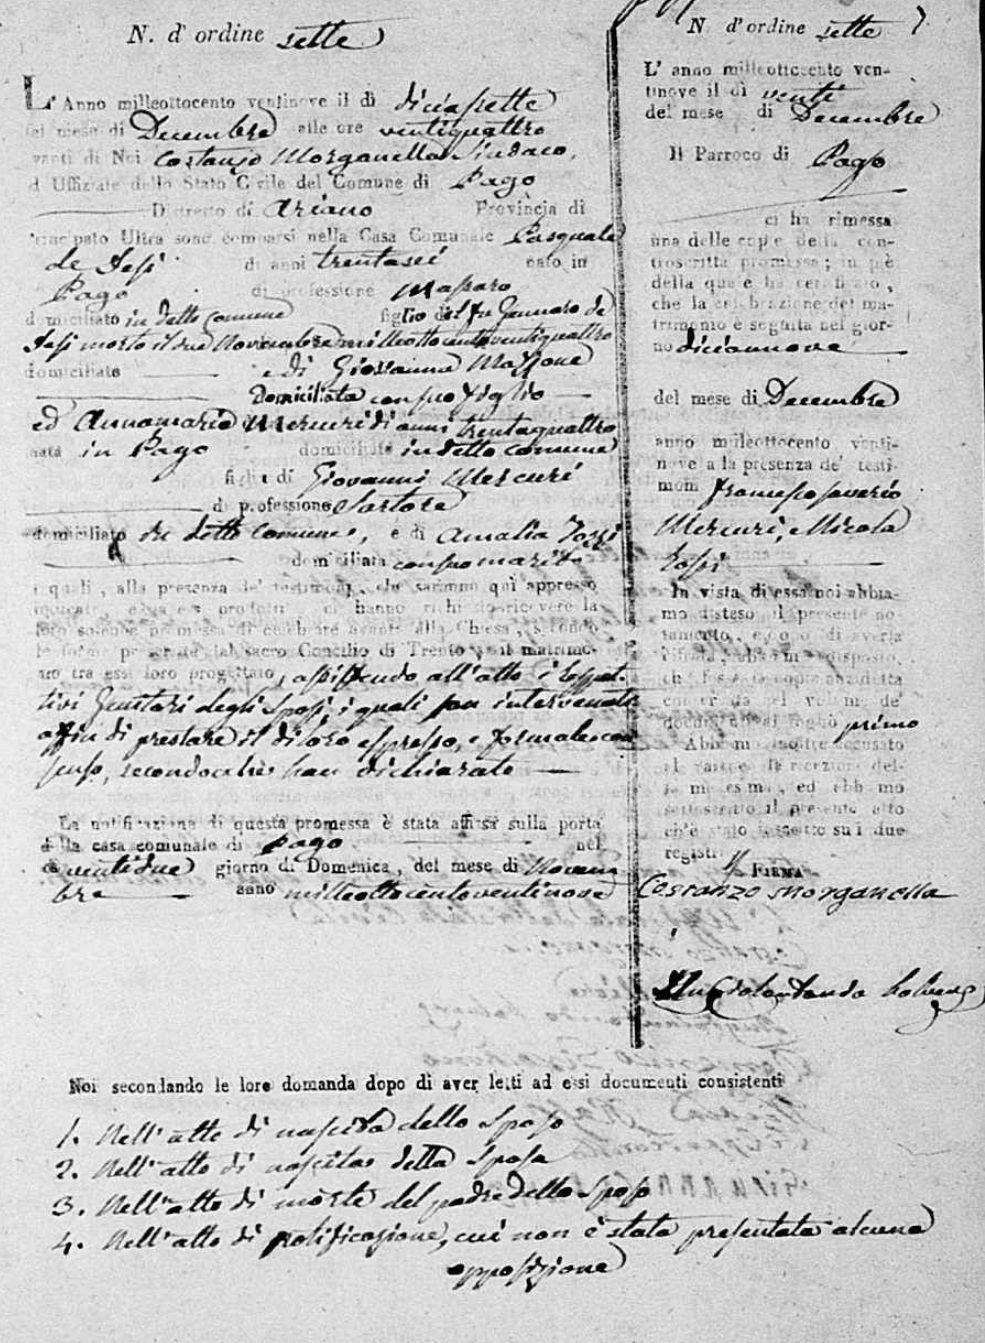 N. d' ordine sette
L' Anno milleottocento ventinove il dì diciassette
del mese di Decembre alle ore ventiquattro
vanti di Noi Costanzo Morganella Sindaco,
d Uffiziale dello Stato Civile del Comune di Pago
Distretto di Ariano Provincia di
rincipato Ultra sono comparsi nella Casa Comunale Pasquale
de Iasi di anni trentasei nato in
Pago di professione Massaro
domiciliato in detto Comune figlio del fu Gennaro de
Iasi morto il due Novembre milleottocentoventiquattro
domiciliato e di Giovanna Mazzone
Domiciliata con suo figlio
ed Annamaria Mercuri di anni trentaquattro
nata in Pago domiciliata in detto Comune
figlia di Giovanni Mercuri
di professione Sartore
domiciliato in detto Comune, e di Amalia
domiciliata con suo marito
i quali, alla presenza de' testimonj, che saranno qui appresso
indicati, e da essi prodotti ci hanno richiesto ricevere la
loro solenne promessa di celebrare avanti alla Chiesa, secondo
le forme prescritte dal sacro Concilio di Trento, il matrimo-
nio tra essi loro progettato, assistendo all'atto i rispet-
tivi Genitori degli Sposi, i quali son intervenuti
affin di prestare il di loro espresso, e formale con
senso, secondocchè han dichiarato
La notificazione di questa promessa è stata affissa sulla porta
della casa comunale di Pago nel
dì ventidue giorno di Domenica, del mese di Novem
bre anno milleottocentoventinove
N d'ordine sette
L' anno milleottocento ven-
tinove il dì venti
del mese di Decembre
Il Parroco di Pago
ci ha rimessa
una delle copie della con-
troscritta promessa; in piè
della quale ha certificato,
che la celebrazione del ma-
trimonio è seguita nel gior-
no diciannove
del mese di Decembre
anno milleottocento venti-
nove a la presenza de' testi-
monj Francescosaverio
Mercuri, e Nicola
In vista di essa noi abbia-
mo disteso il presente no-
tamento, e dopo di averla
cifrata, abbiam disposto,
che fosse la copia anzidetta
conservata nel volume de'
documenti al foglio primo
Abbiamo inoltre accusato
al Parroco la ricezione del-
la medesima, ed abbiamo
sottoscritto il presente atto
ch'è stato inscritto su i due
registri
FIRMA
Costanzo Morganella
Noi secondando le loro domanda dopo di aver letti ad essi documenti consistenti
1. Nell'atto di nascita dello Sposo
2. Nell'atto di nascita della Sposa
3. Nell'atto di morte del padre dello Sposo
4. Nell'atto di notificazione, cui non è stata presentata alcuna
opposizione